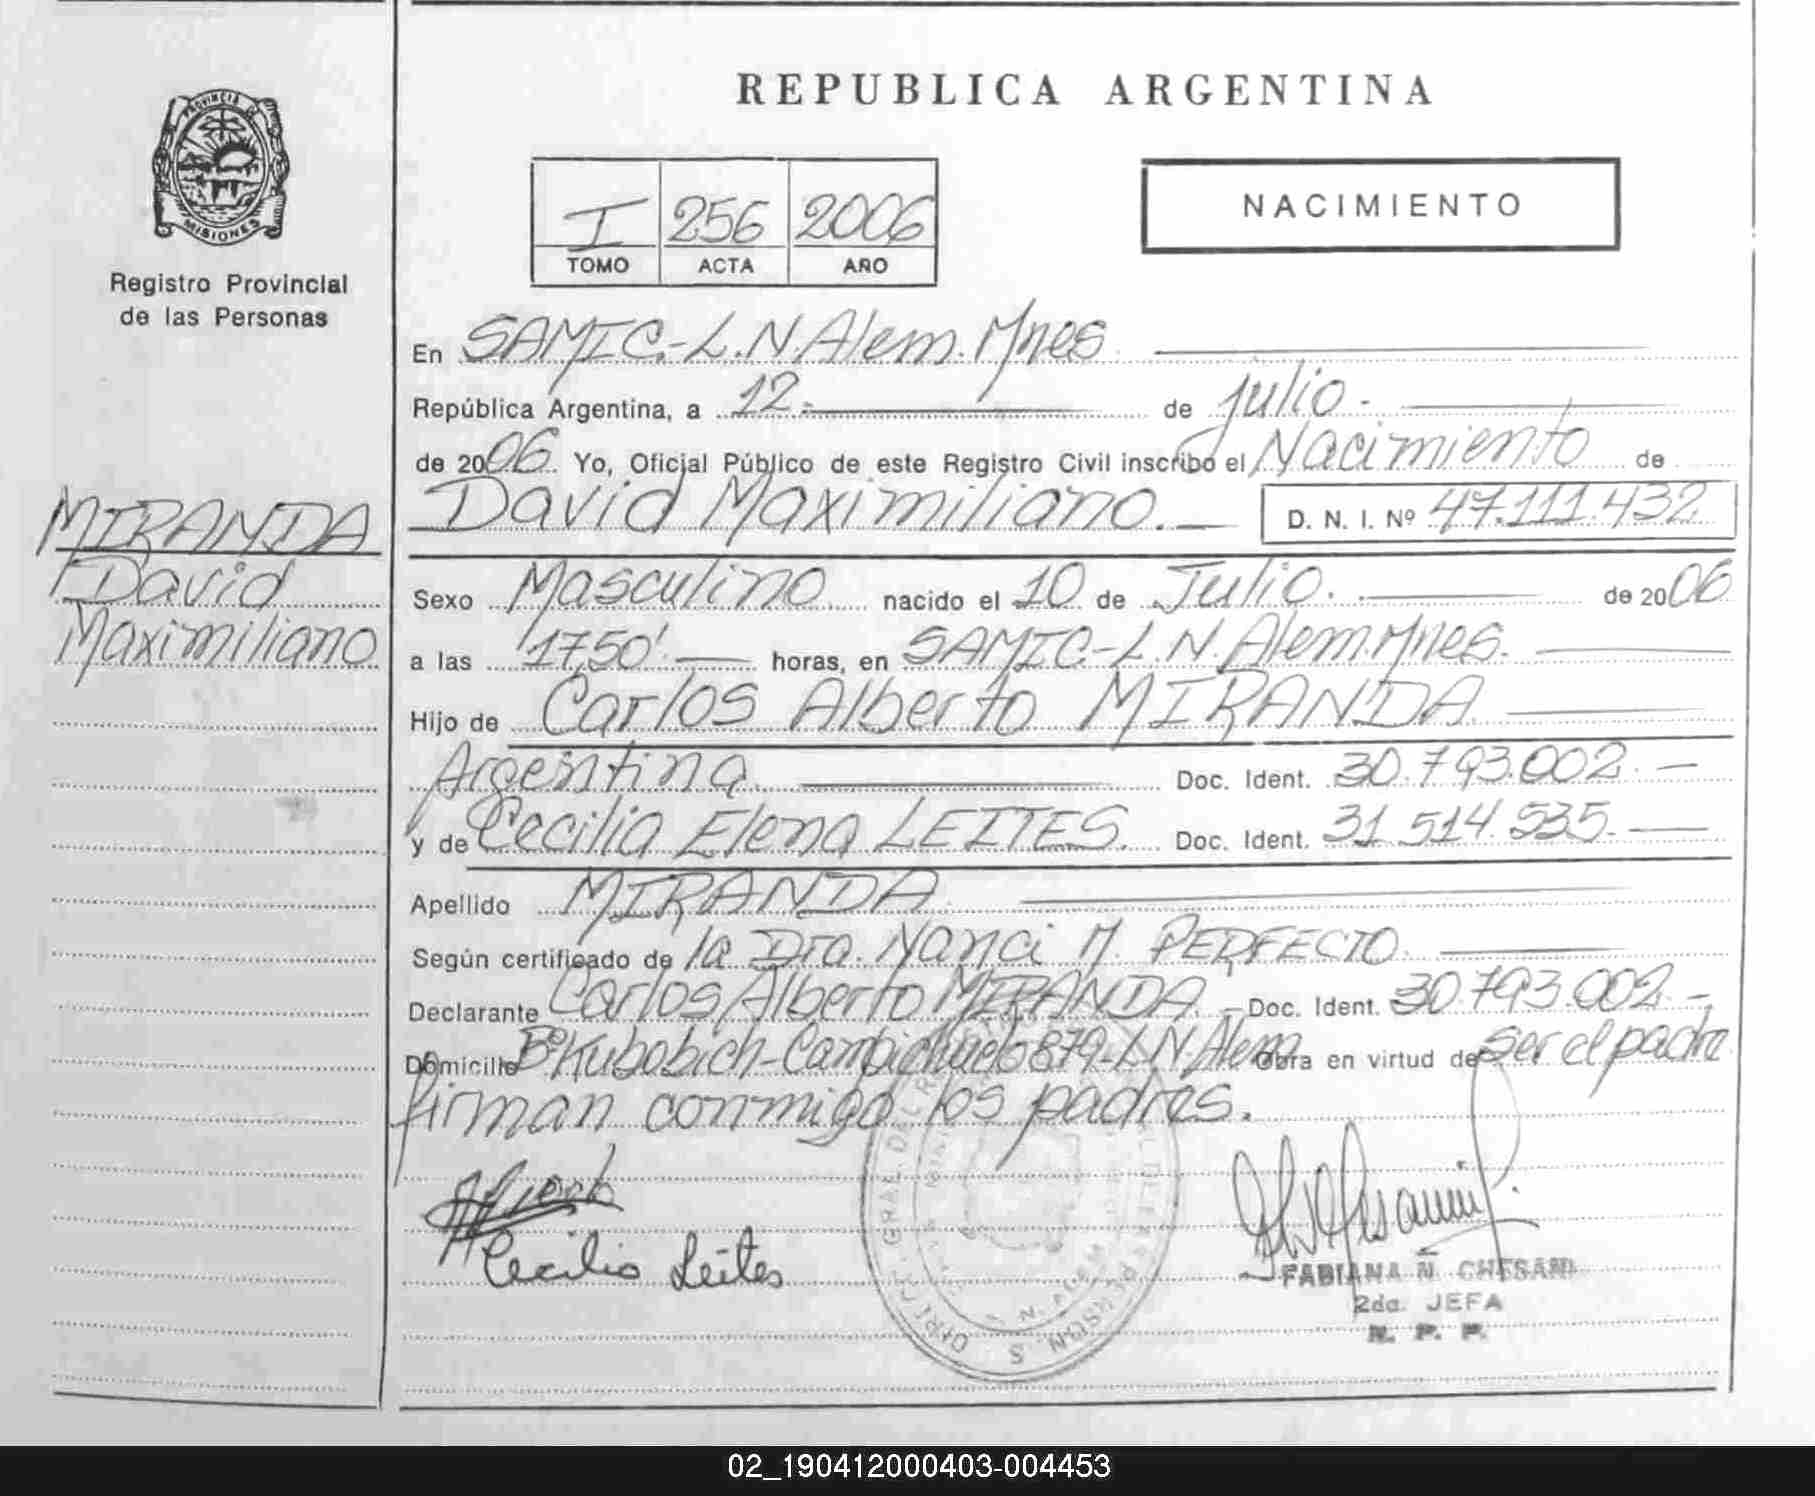 PROVINCIA DE
MISIONES
Registro Provincial
de las Personas
MIRANDA
David
Maximiliano
REPUBLICA ARGENTINA
I 256 2006
TOMO ACTA AÑO
NACIMIENTO
En SAMIC.-L.N.Alem.Mnes
República Argentina, a 12.- de julio.-
de 2006. Yo, Oficial Público de este Registro Civil inscribo el Nacimiento de
David Maximiliano.— D. N. I. Nº 47.111.432
Sexo Masculino nacido el 10 de Julio. de 2006
a las '17,50'.— horas, en SAMIC-L.N.Alem.Mnes.
Hijo de Carlos Alberto MIRANDA
Argentina. Doc. Ident. 30.793.002.—
y de Cecilia Elena LEITES. Doc. Ident. 31.514.535.—
Apellido MIRANDA
Según certificado de la Dra. Nanci M. PERFECTO.
Declarante Carlos Alberto MIRANDA.- Doc. Ident. 30.793.002.-
Domicilio Bº Kubobich-Campichuelo 879-L.N.Alem Obra en virtud de ser el padre
firman conmigo los padres.
Cecilia Leites
FABIANA N. CHESANI
2da. JEFA
R. P. P.
02_190412000403-004453